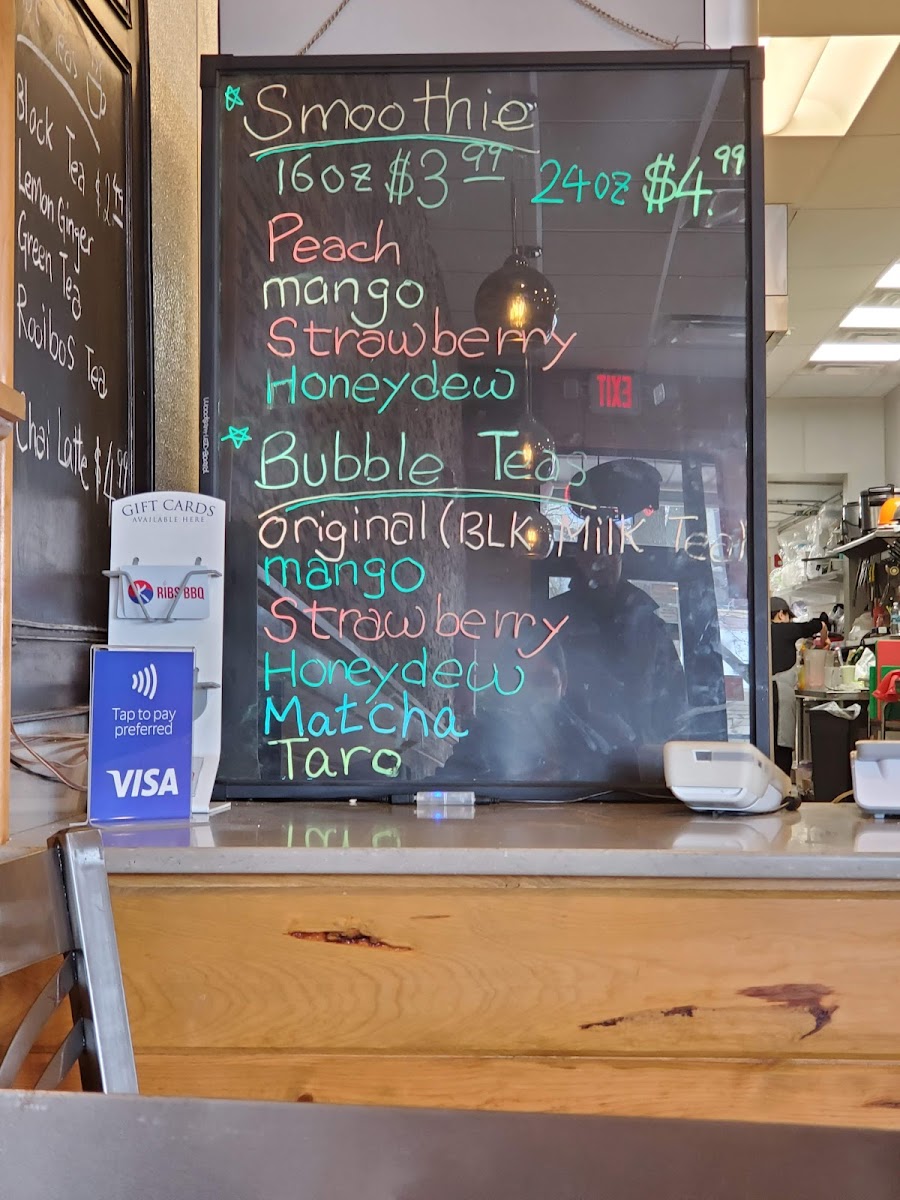 Teas
Black Tea $2.49
Lemon Ginger
Green Tea
Rooibos Tea
Chai Latte $4.99
Smoothie
16oz $3.99 24oz $4.99
Peach
mango
Strawberry
Honeydew
Bubble Teas
original (BLK Milk Tea)
mango
Strawberry
Honeydew
Matcha
Taro
EXIT
GIFT CARDS
AVAILABLE HERE
K RIBS BBQ
Tap to pay
preferred
VISA